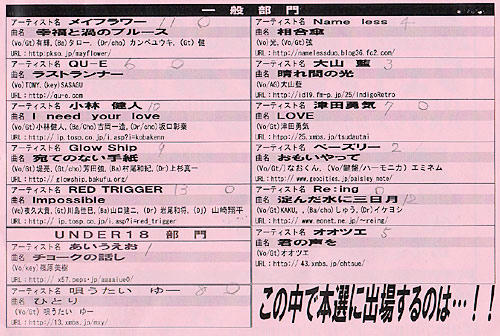 一般部門
アーティスト名 メイフラワー 11 0
曲名 幸福と渦のブルース
(Vo/Gt)有輝,(Ba)タロー, (Dr/cho) カンペユウキ, (Gt) 健
URL:http:pksp.jp/mayflower/
アーティスト名 QU-E 6 0
曲名 ラストランナー
(Vo)TONY,(key)SASAGU
URL:http://qu-e.com
アーティスト名 小林 健人 10
曲名 I need your love
(Vo/Gt)小林健人,(Ba/Cho)吉岡一造,(Dr/cho)坂口彰秦
URL:http:// ip.tosp.co.jp/i.asp?i=kobakenn
アーティスト名 Glow Ship 9
曲名 宛てのない手紙
(Vo/Gt)堤亮, (Gt/cho)芳田弦, (Ba)村尾和紀, (Dr)上杉真一
URL:http://glowship.bakufu.org/
アーティスト名 RED TRIGGER 13 0
曲名 Impossible
(Vo)夜久大貴,(Gt)川島世巳,(Ba)山口建二, (Dr) 岩尾和将, (Dj) 山崎翔平
URL:http:// ip.tosp.co.jp/i.asp?i=red_trigger
UNDER18 部門
アーティスト名 あいうえお 1
曲名 チョークの話し
(Vo/key)篠原美樹
URL:http:// x57.peps.jp/aaaaiue0/
アーティスト名 唄うたい ゆー 8 0
曲名 ひとり
(Vo/Gt) 唄うたい ゆー
URL:http://13.xmbs.jp/mxy/
アーティスト名 Name less 4
曲名 相合傘
(Vo)光,(Vo/Gt)弦
URL:http://namelessduo.blog36.fc2.com/
アーティスト名 大山 藍 3
曲名 晴れ間の光
(Vo/AG)大山藍
URL:http://id19.fm-p.jp/25/indigoRetro
アーティスト名 津田勇気 7 0
曲名 LOVE
(Vo/Gt)津田勇気
URL:htpp://25.xmbs.jp/tsudautai
アーティスト名 ペーズリー 2
曲名 おもいやって
(Vo/Gt)なおくん, (Vo/鍵盤/ハーモニカ) エミネム
URL:http://www.geocities.jp/paisley_note/
アーティスト名 Re:ing 0
曲名 淀んだ水に三日月 12
(Vo/Gt)KAKU, , (Ba/cho)しゅう,(Dr)イケヨシ
URL:http://www.monet.ne.jp/~reing/
アーティスト名 オオツエ 5
曲名 君の声を
(Vo/Gt)オオツエ
URL:http:// 43.xmbs.jp/ohtsue/
この中で本選に出場するのは…！！